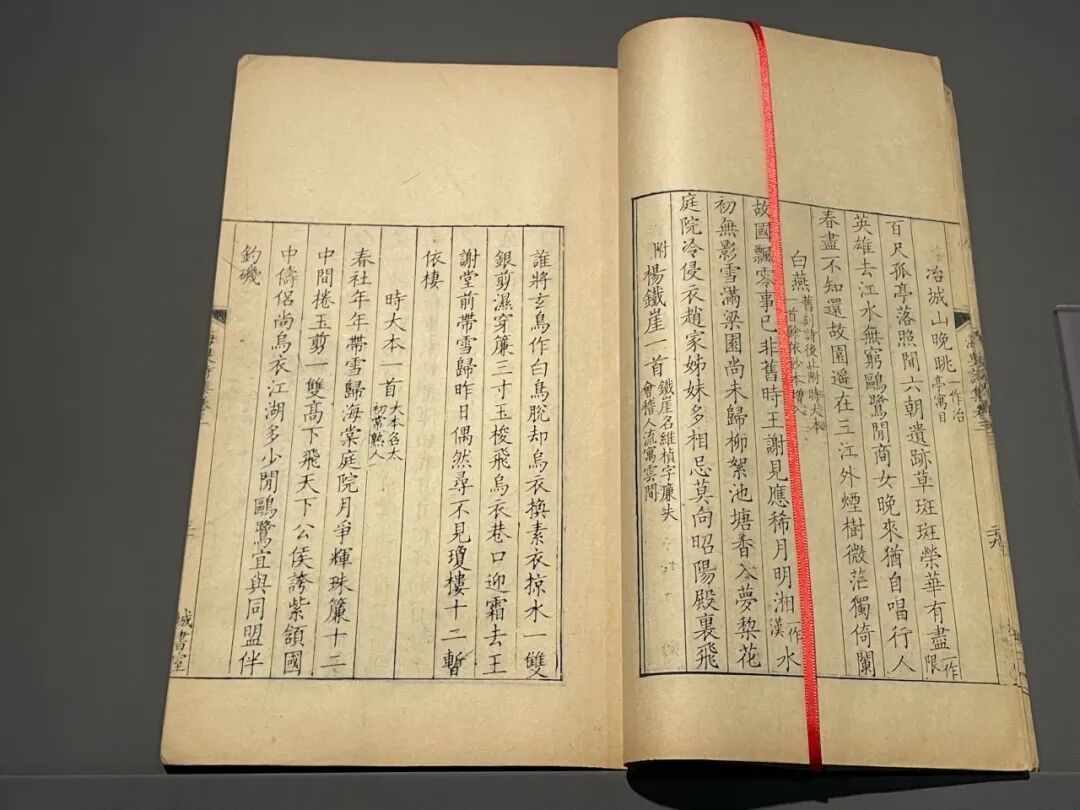 冶城山晚眺一作冶亭寓目
百尺孤亭落照閒六朝遺跡草斑斑榮華有盡一作限
英雄去江水無窮鷗鷺閒商女晚來猶自唱行人
春盡不知還故園遥在三江外煙樹微茫獨倚闌
白燕舊刻詩後止附時大本一首餘依抄本增入
故國飄零事已非舊時王謝見應稀月明湘一作漢水
初無影雪滿梁園尚未歸柳絮池塘香入夢棃花
庭院冷侵衣趙家姊妹多相忌莫向昭陽殿裏飛
附楊鐵崖一首鐵崖名維楨字廉夫會稽人流寓雲間
誰將玄鳥作白鳥脫却烏衣換素衣掠水一雙
銀剪濕穿簾三寸玉梭飛烏衣巷口迎霜去王
謝堂前帶雪歸昨日偶然尋不見瓊樓十二暫
依棲
時大本一首大本名太初常熟人
春社年年帶雪歸海棠庭院月爭輝珠簾十二
中間捲玉剪一雙髙下飛天下公侯誇紫頷國
中儔侣尚烏衣江湖多少閒鷗鷺宜與同盟伴
釣磯
城書室